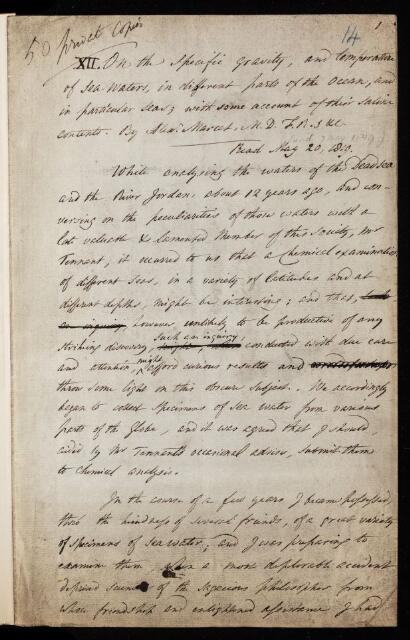 50 private Copies
14
1
XII. On the Specific gravity, and temperature
of Sea Waters, in different parts of the Ocean, and
in particular seas; with some account of their saline
contents. By Alexr. Marcet, M.D. F.R.S &c.
Read May 20, 1819.
While analysing the waters of the Dead Sea
and the River Jordan, about 12 years ago, and con-
versing on the peculiarities of those waters with a
late valuable & lamented Member of this Society, Mr
Tennant, it occurred to us that a Chemical examination
of different Seas, in a variety of latitudes and at
different depths, might be interesting; and that, such
an inquiry, however unlikely to be productive of any
such an inquiry
striking discovery, conducted with due care
might
and attention, afford curious results and
throw some light on this obscure subject. We accordingly
began to collect Specimens of sea water from various
parts of the Globe, and it was agreed that I should,
aided by Mr Tennant's occasional advice, submit them
to chemical analysis.
In the course of a few years I became possessed,
thro the kindness of several friends, of a great variety
of specimens of sea water; and I was preparing to
examine them, when a most deplorable accident
deprived science of the sagacious philosopher from
whose friendship and enlightened assistance I had